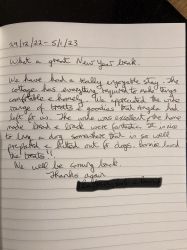 29/12/22 - 5/1/23
What a great New Year break.
We have had a really enjoyable stay. The
cottage has everything required to make things
comfortable & homely. We appreciated the wide
range of treats & goodies that Angela had
left for us. The wine was excellent, the home
made bread & cake were fantastic. It is nice
to bring a dog somewhere that is so well
prepared & kitted out for dogs. Bonnie loved
the treats!!
We will be coming back.
Thanks again